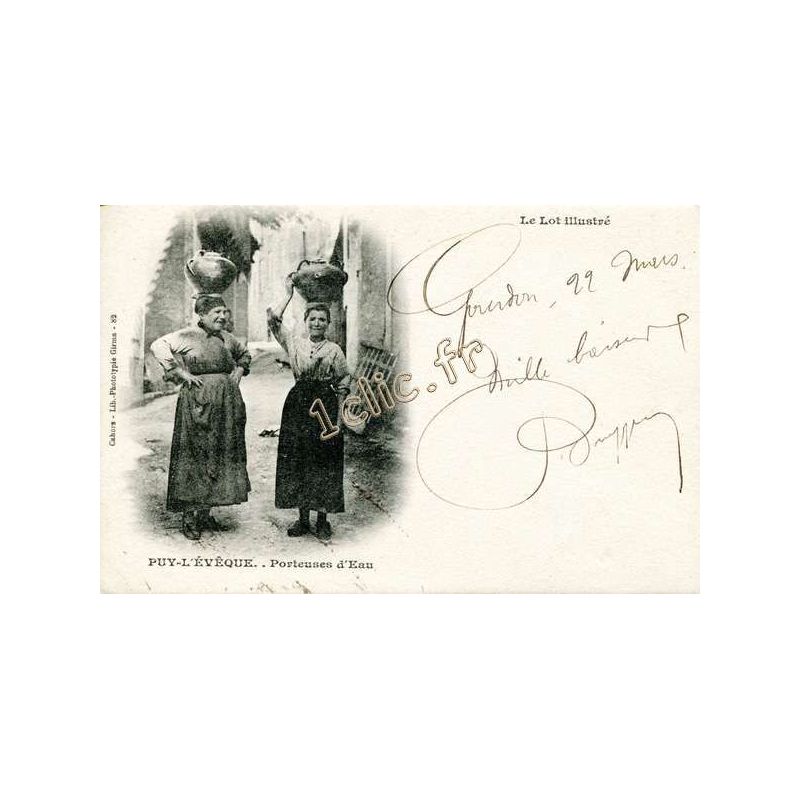 Le Lot illustré
Gourdon, 22 Mars.
Mille baisers
Cahors - Lib.-Phototypie Girma - 82
1clic.fr
PUY-L'ÉVÊQUE. . Porteuses d'Eau